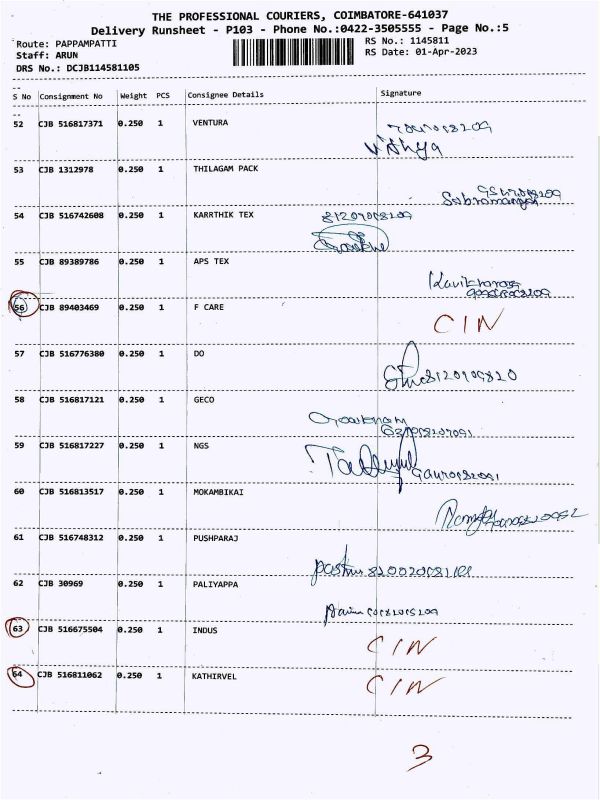 THE PROFESSIONAL COURIERS, COIMBATORE-641037
Delivery Runsheet - P103 - Phone No.:0422-3505555 - Page No.:5
Route: PAPPAMPATTI
RS No.: 1145811
Staff: ARUN
RS Date: 01-Apr-2023
DRS No.: DCJB114581105
S No Consignment No Weight PCS Consignee Details Signature
52 CJB 516817371 0.250 1 VENTURA
Vidhya
53 CJB 1312978 0.250 1 THILAGAM PACK
54 CJB 516742608 0.250 1 KARRTHIK TEX
55 CJB 89389786 0.250 1 APS TEX
56 CJB 89403469 0.250 1 F CARE CIN
57 CJB 516776380 0.250 1 DO
58 CJB 516817121 0.250 1 GECO
59 CJB 516817227 0.250 1 NGS
60 CJB 516813517 0.250 1 MOKAMBIKAI
61 CJB 516748312 0.250 1 PUSHPARAJ
62 CJB 30969 0.250 1 PALIYAPPA
63 CJB 516675504 0.250 1 INDUS CIN
64 CJB 516811062 0.250 1 KATHIRVEL CIN
3